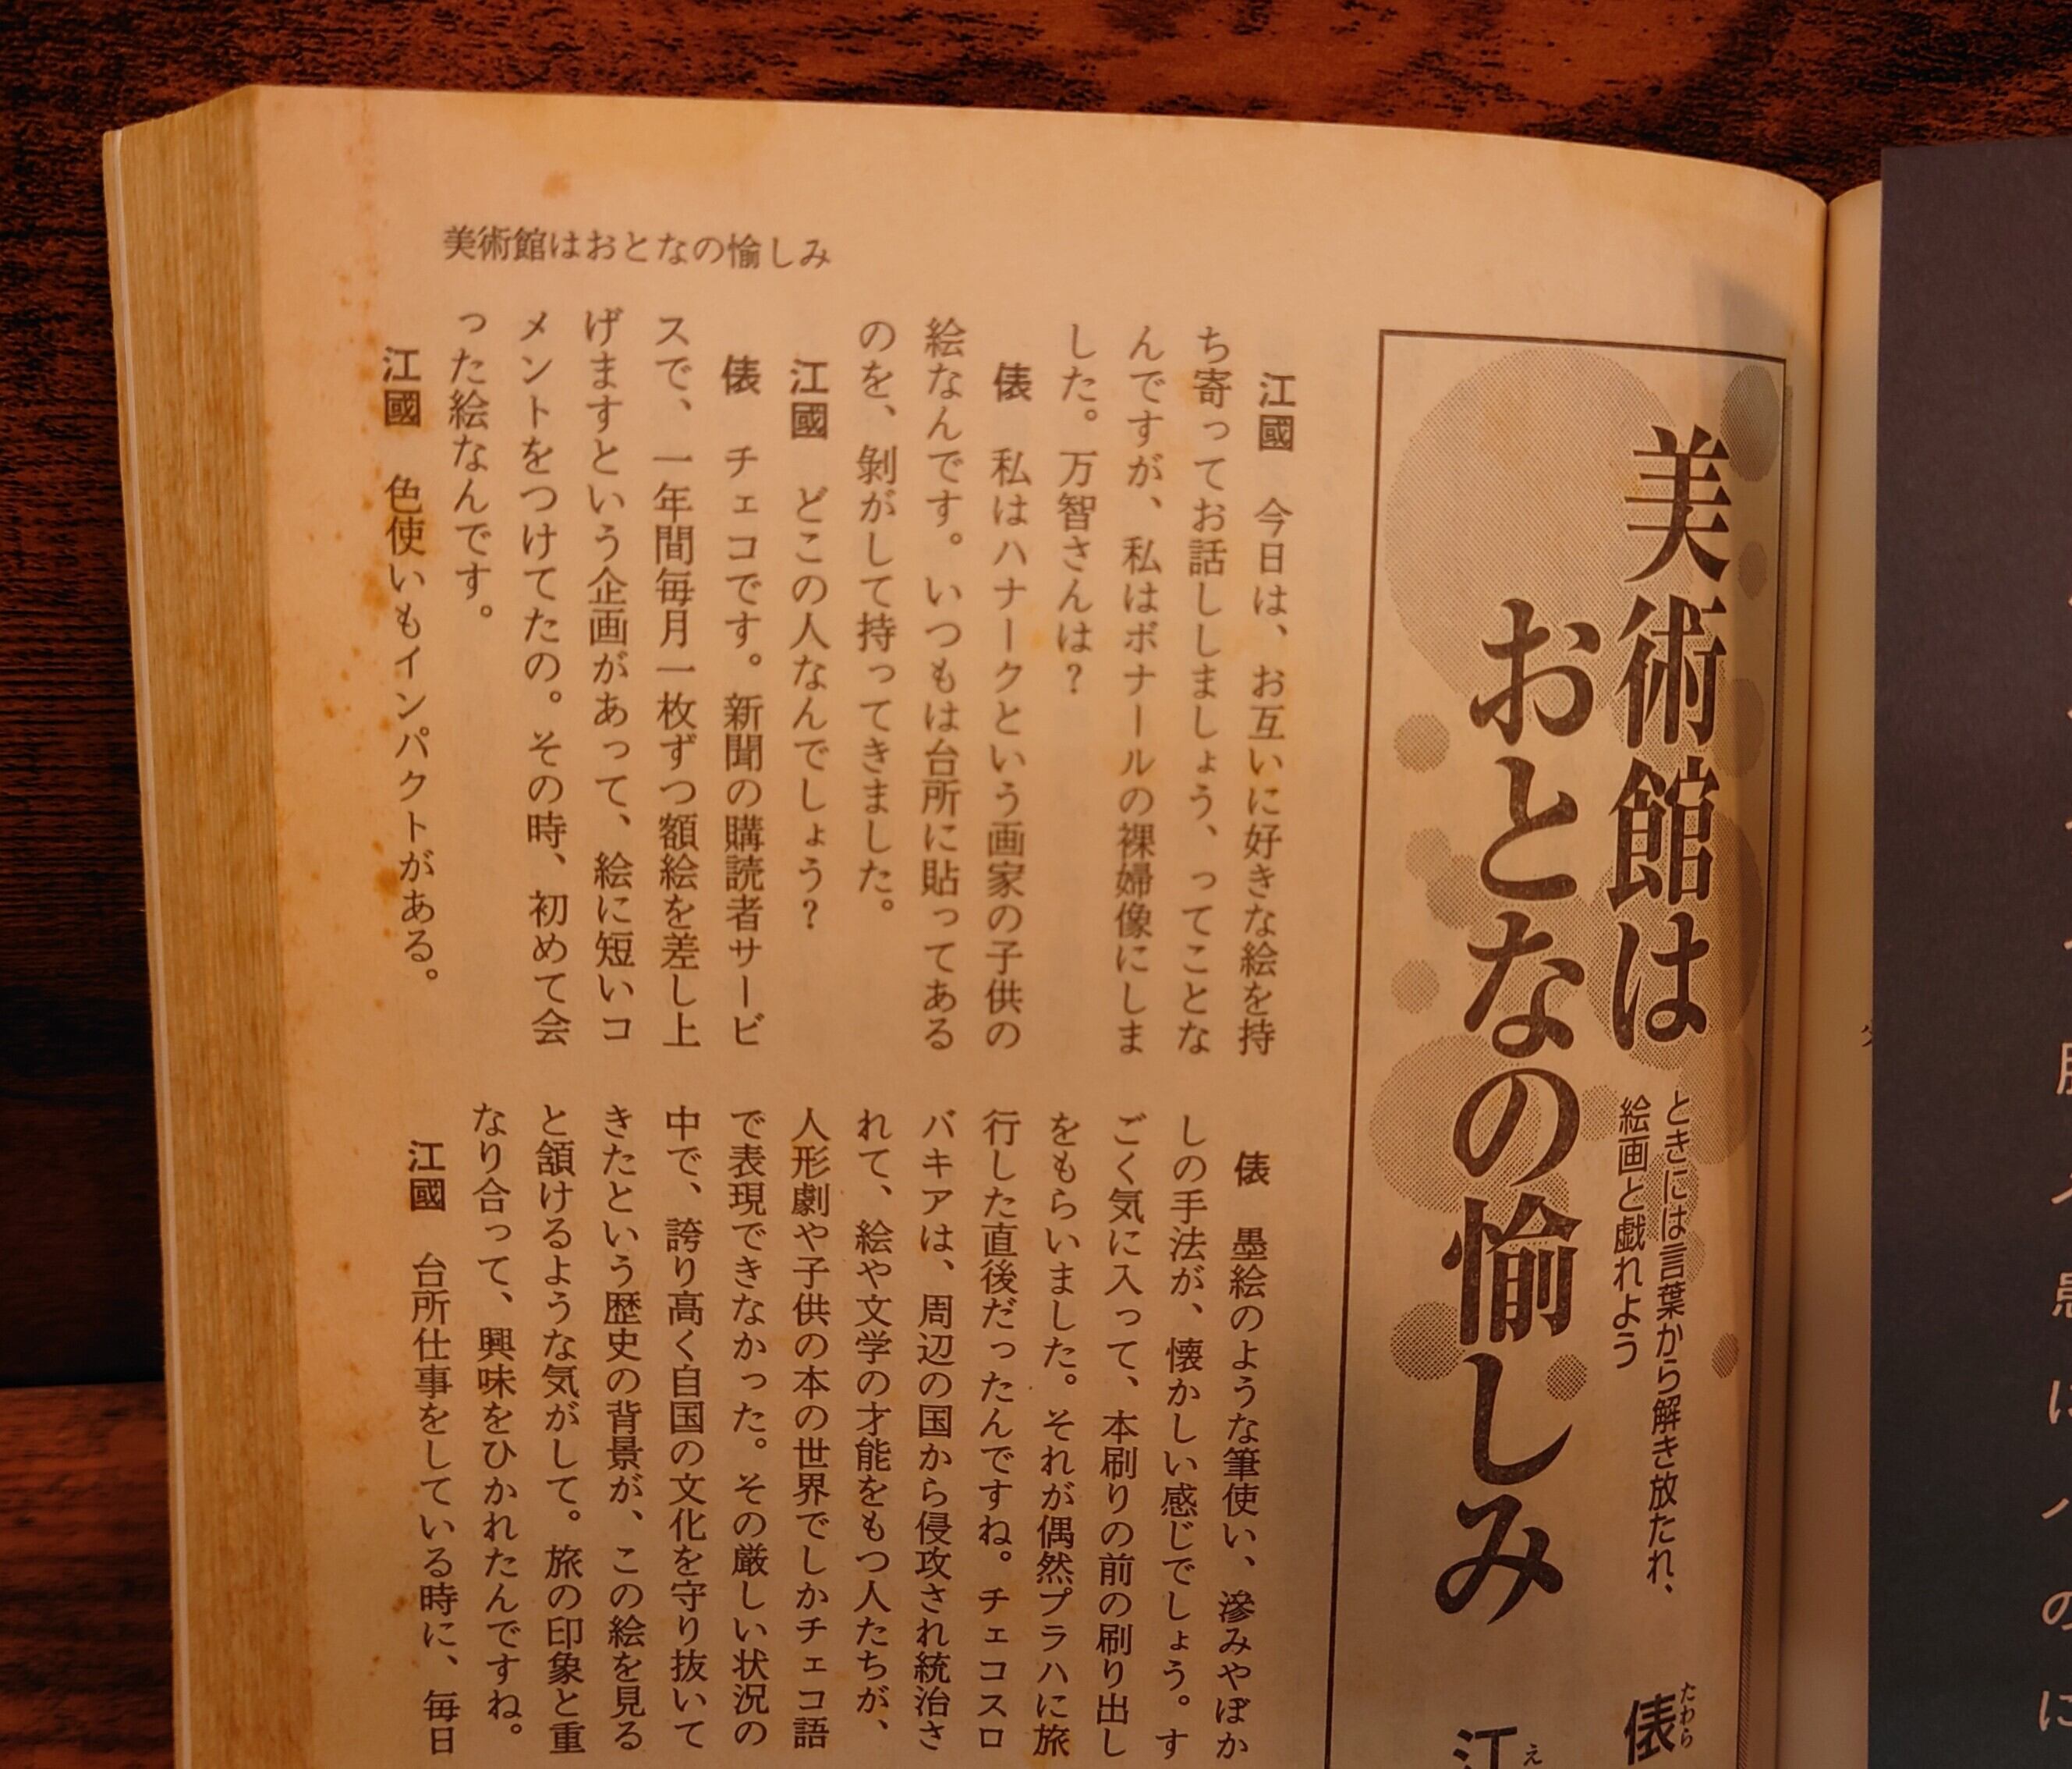 美術館はおとなの愉しみ
美術館は
おとなの愉しみ
ときには言葉から解き放たれ、
絵画と戯れよう
たわら
俵
え
江
江國　今日は、お互いに好きな絵を持
ち寄ってお話ししましょう、ってことな
んですが、私はボナールの裸婦像にしま
した。万智さんは？
俵　私はハナークという画家の子供の
絵なんです。いつもは台所に貼ってある
のを、剝がして持ってきました。
江國　どこの人なんでしょう？
俵　チェコです。新聞の購読者サービ
スで、一年間毎月一枚ずつ額絵を差し上
げますという企画があって、絵に短いコ
メントをつけてたの。その時、初めて会
った絵なんです。
江國　色使いもインパクトがある。
俵　墨絵のような筆使い、滲みやぼか
しの手法が、懐かしい感じでしょう。す
ごく気に入って、本刷りの前の刷り出し
をもらいました。それが偶然プラハに旅
行した直後だったんですね。チェコスロ
バキアは、周辺の国から侵攻され統治さ
れて、絵や文学の才能をもつ人たちが、
人形劇や子供の本の世界でしかチェコ語
で表現できなかった。その厳しい状況の
中で、誇り高く自国の文化を守り抜いて
きたという歴史の背景が、この絵を見る
と頷けるような気がして。旅の印象と重
なり合って、興味をひかれたんですね。
江國　台所仕事をしている時に、毎日